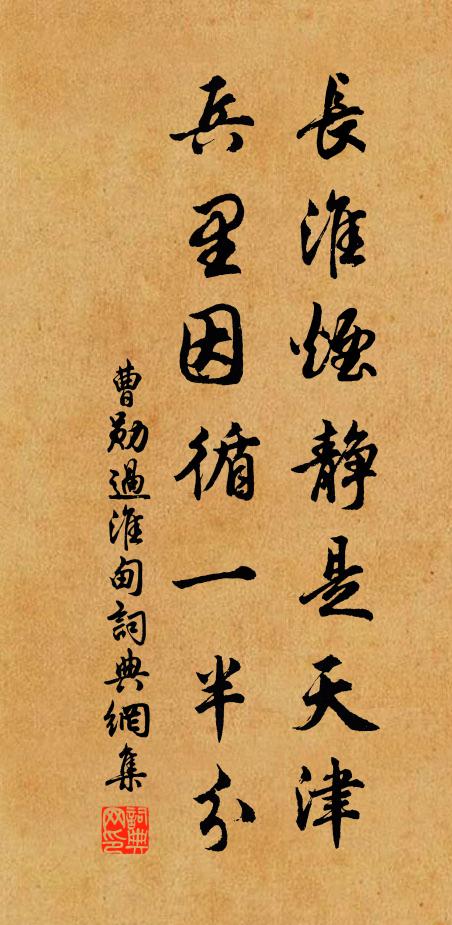 長淮煙静是天津
兵里因循一半分
曹勛過淮甸詞典網集
詞典網印